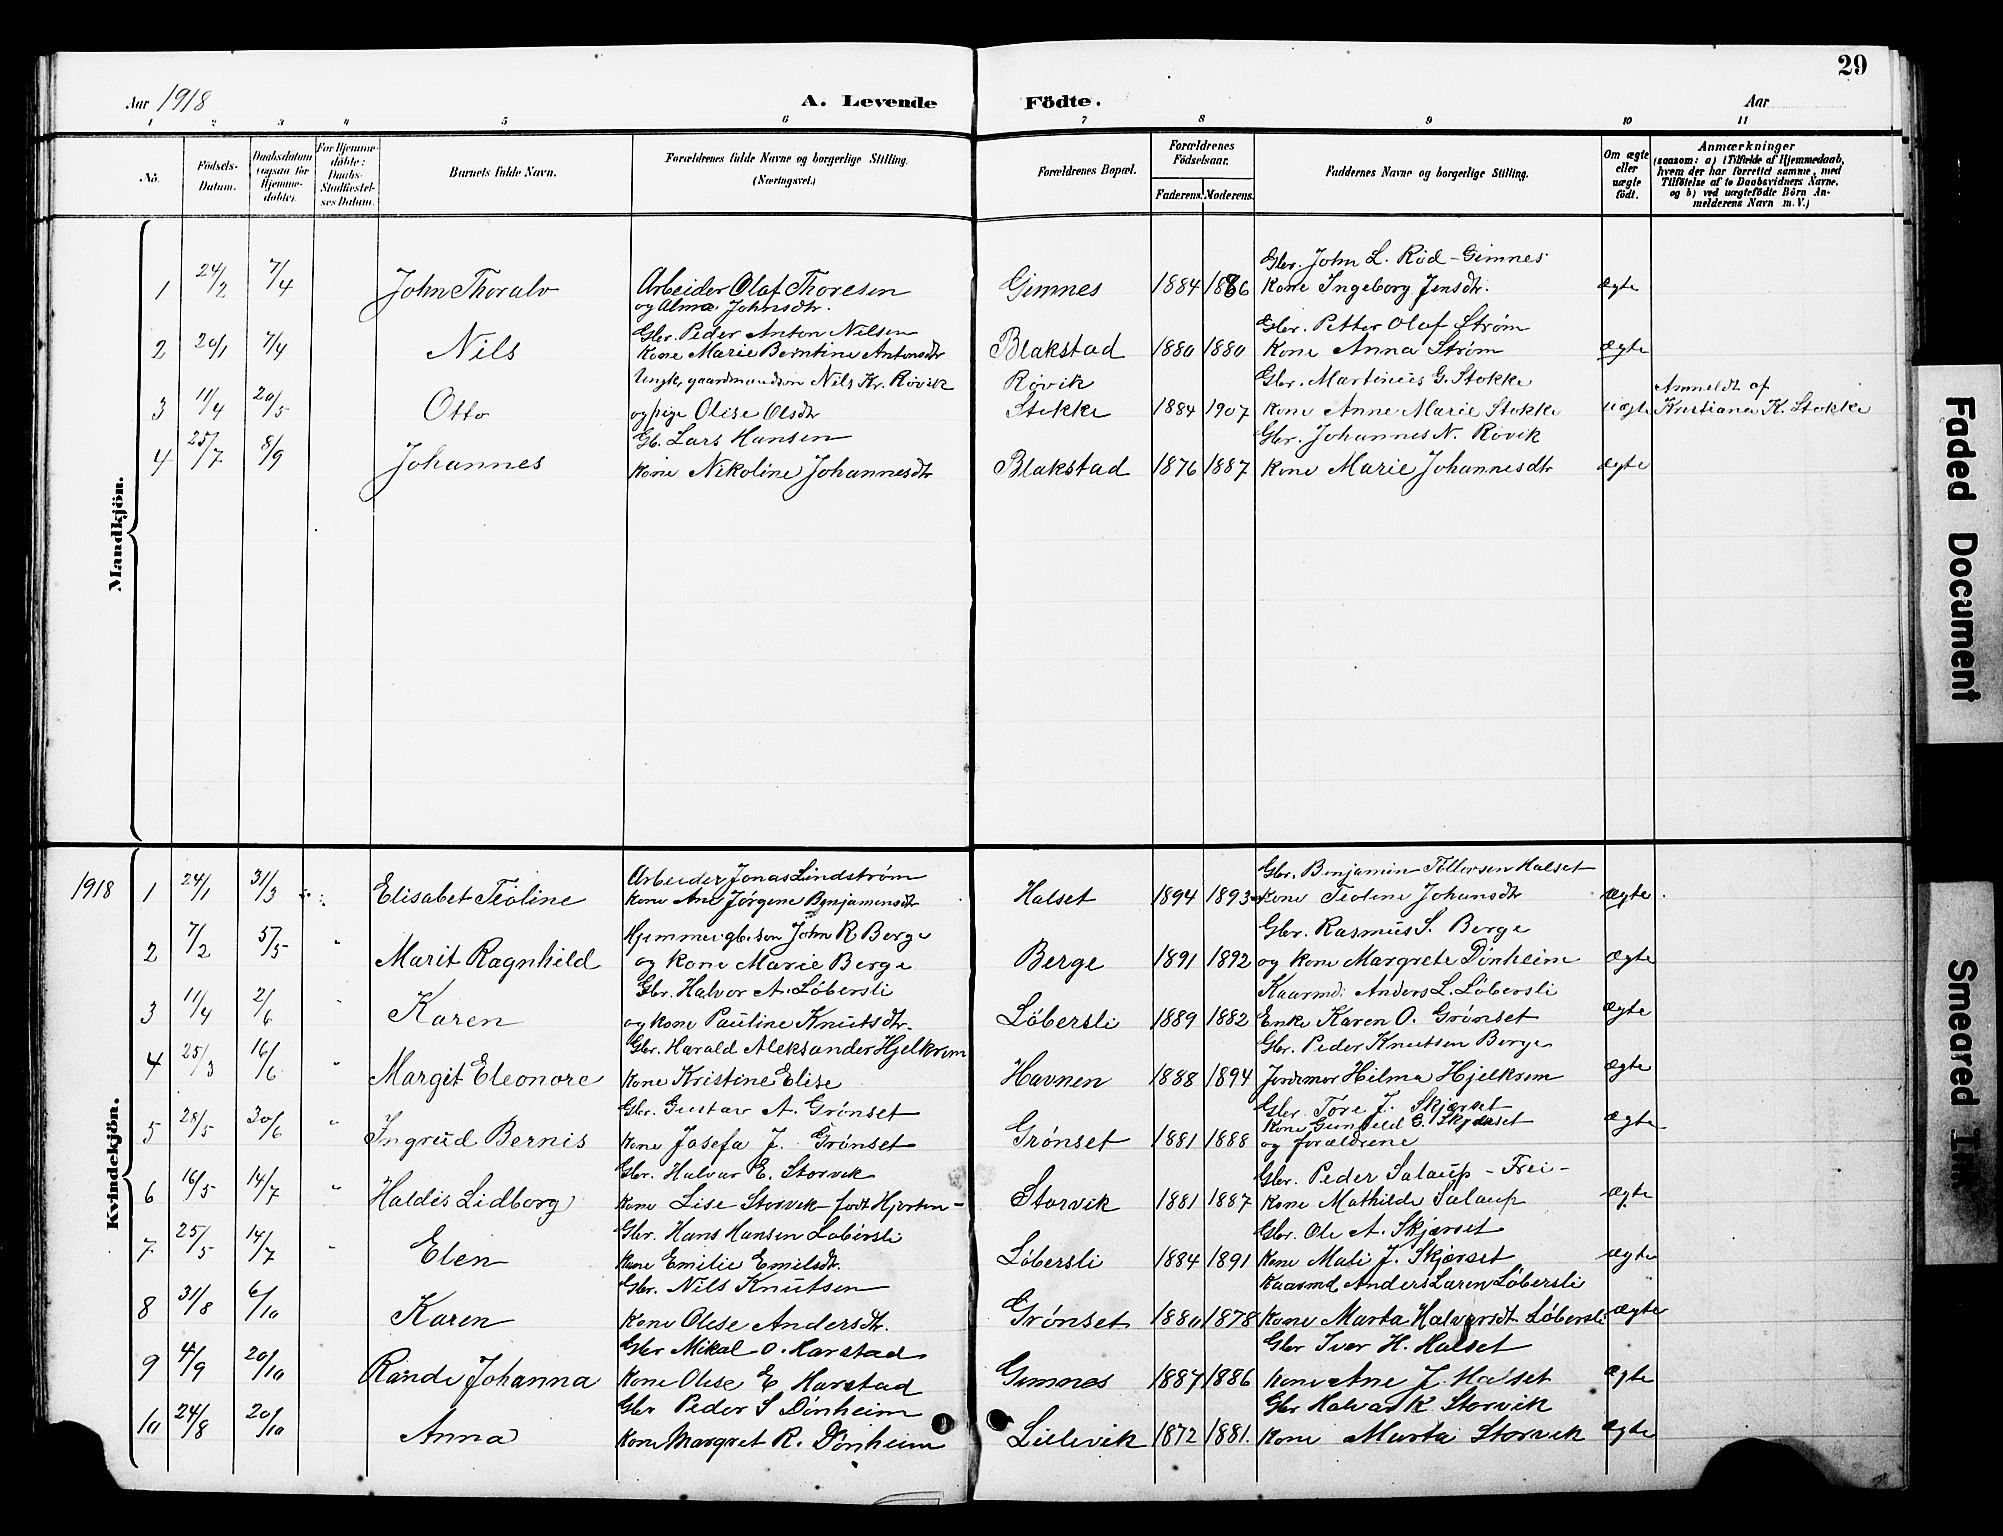 29
Aar 1918
A. Levende Födte.
Aar
1 2 3 4 5 6 7 8 9 10 11
No.
Födsels-Datum.
Daabsdatum (ogsaa for Hjemme-döbte).
For Hjemme-döbte: Daabs-Stadfæstel-ses Datum.
Barnets fulde Navn.
Forældrenes fulde Navne og borgerlige Stilling. (Næringsvei.)
Forældrenes Bopæl.
Forældrenes Födselsaar.
Faderens. Moderens.
Faddernes Navne og borgerlige Stilling.
Om ægte eller uægte födt.
Anmærkninger
(saasom: a) i Tilfælde af Hjemmedaab, hvem der har forrettet samme, med Tilföielse af to Daabsvidners Navne, og b) ved uægtefödte Börn An-melderens Navn m. V.)
Mandkjön.
Gbr. John L. Rød - Gimnes
1 24/2 7/4 John Thoralv Arbeider Olaf Thoresen Gimnes 1884 1886 Kone Ingeborg Jensdtr. ægte
og Alma Johnsdtr.
Gbr. Peder Anton Nilsen Gbr. Petter Olaf Strøm
2 20/1 7/4 Nils Kone Marie Berntine Antonsdtr Blakstad 1880 1880 Kone Anna Strøm ægte
Ungk. gaardmandsøn Nils Kr. Røvik Røvik Gbr. Martinus G. Stokke Anmeldt af
3 11/4 20/5 Otto og pige Olise Olsdtr Stokke 1884 1907 Kone Anne Marie Stokke uægte Kristiana K. Stokke
Gb. Lars Hansen Gbr. Johannes N. Røvik
4 25/7 8/9 Johannes Kone Nikoline Johannesdtr Blakstad 1876 1887 Kone Marie Johannesdtr ægte
Kvindekjön.
Arbeider Jonas Lindstrøm Gbr. Benjamin Tollevsen Halset
1918 1 24/1 31/3 Elisabet Teoline Kone Ane Jørgene Benjaminsdt Halset 1894 1893 Kone Teoline Johansdtr ægte
Hjemmev. gb. søn John R Berge Gbr. Rasmus S. Berge
2 7/2 5/5 " Marit Ragnhild og Kone Marie Berge Berge 1891 1892 og Kone Margrete Dønheim ægte
Gbr. Halvor A. Løbersli Kaarmd. Anders L. Løbersli
3 11/4 2/6 " Karen og Kone Pauline Knutsdtr. Løbersli 1889 1882 Enke Karen O. Grønset ægte
Gbr. Harald Aleksander Hjelkrem Gbr. Peder Knutsen Berge
4 25/3 16/6 " Margit Eleonore Kone Kristine Elise Havnen 1888 1894 Jordmor Hilma Hjelkrem ægte
Gbr. Gustav A. Grønset Gbr. Tøre J. Skjærset
Kone Gunhild G. Skjærset
5 28/5 30/6 " Ingrud Bernis Kone Josefa J. Grønset Grønset 1881 1888 og forældrene ægte
Gbr. Halvar E. Storvik Gbr. Peder Salaup - Frei -
6 16/5 14/7 " Haldis Lidborg Kone Lise Storvik født Hjorten - Storvik 1881 1887 Kone Mathilde Salaup ægte
Gbr. Hans Hansen Løbersli Gbr. Ole A. Skjærset
7 25/5 14/7 " Elen Kone Emilie Emilsdtr. Løbersli 1884 1891 Kone Mali J. Skjærset ægte
Gbr. Nils Knutsen Kaarmd Anders Larsen Løbersli
8 31/8 6/10 Karen Kone Olise Andersdtr. Grønset 1880 1878 Kone Marta Halvorsdt Løbersli ægte
Gbr Mikal O. Harstad Gbr Iver H. Halset
9 4/9 20/10 Randi Johanna Kone Olise E Harstad Gimnes 1887 1886 Kone Ane J. Halset ægte
Gbr Peder S Dønheim Gbr Halvar K Storvik
10 24/8 20/10 Anna Kone Margret R. Dønheim Lillevik 1872 1881. Kone Marta Storvik ægte
Faded Document
Smeared Ink